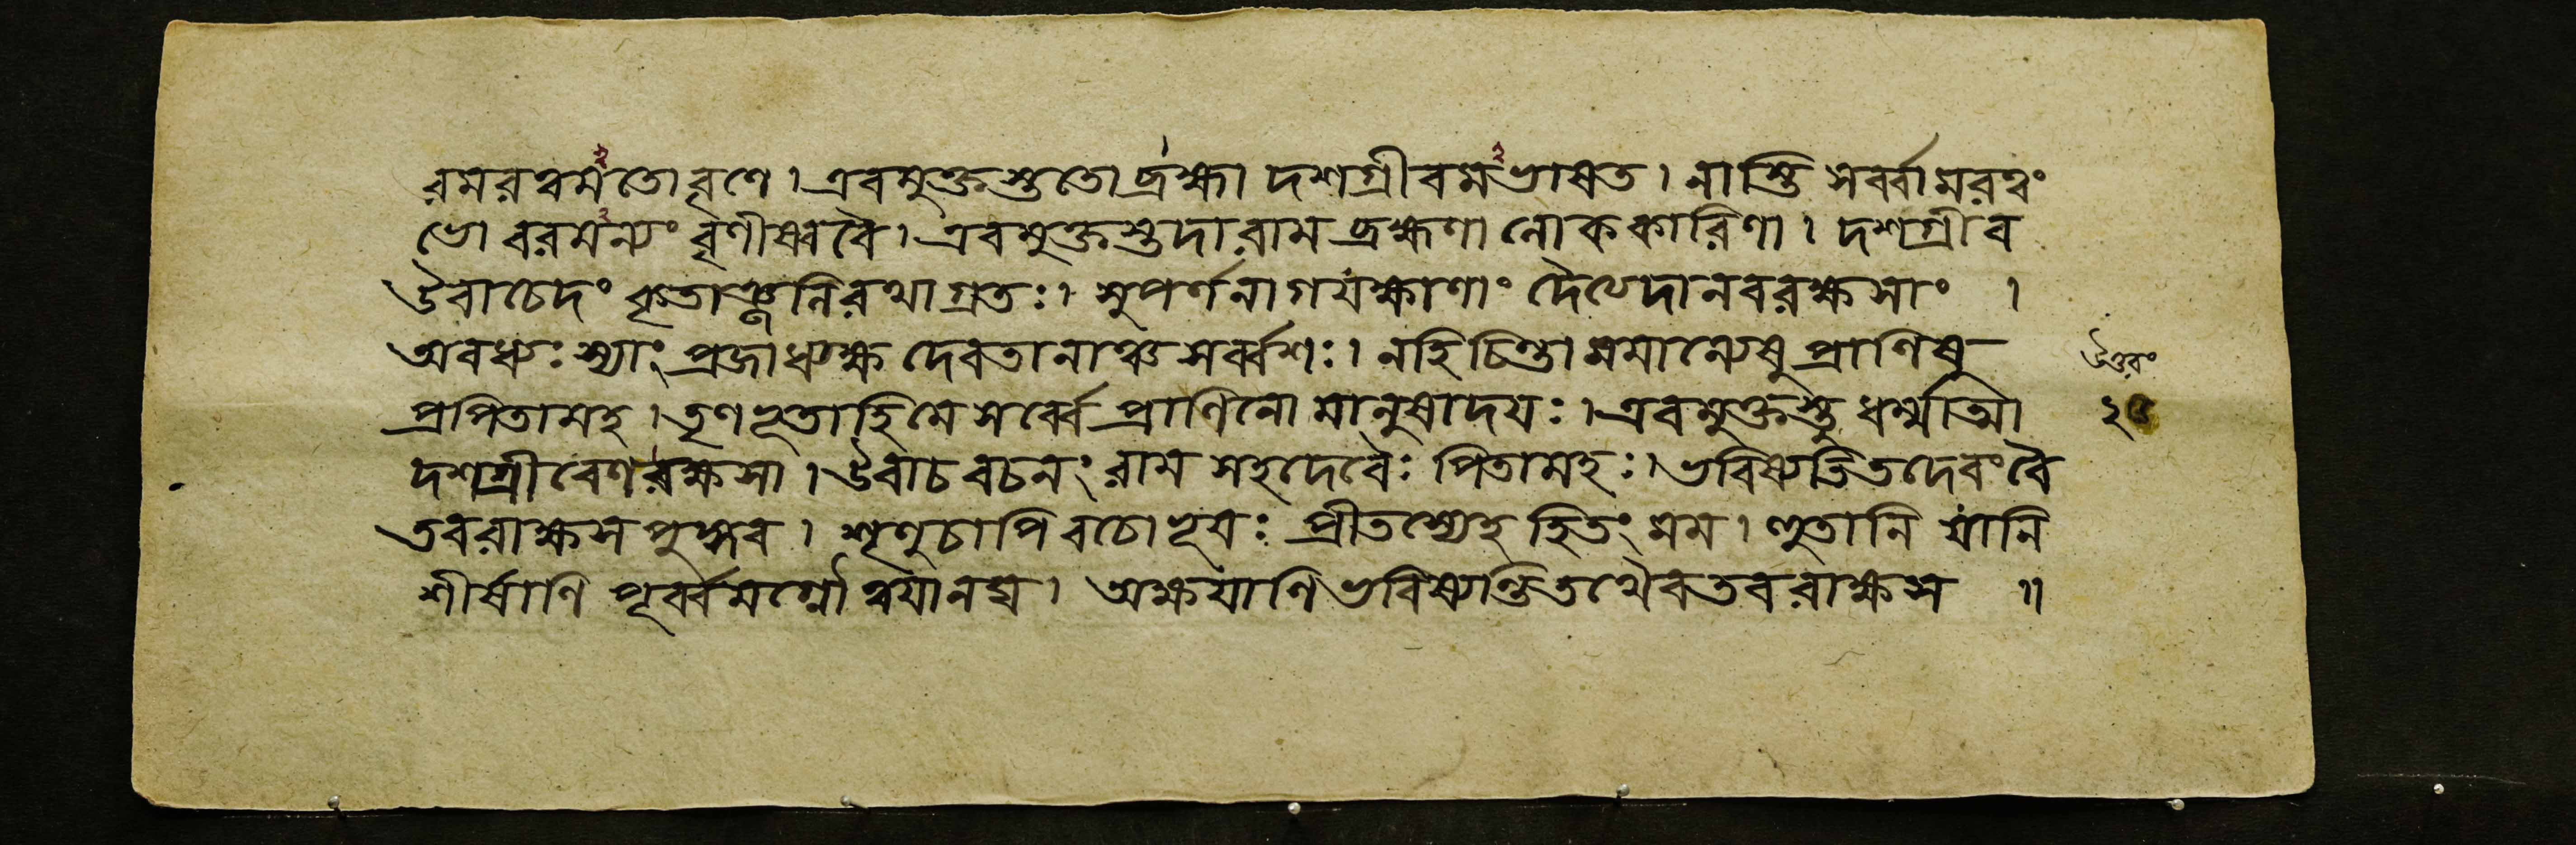 রমরত্বমতো বৃণে । এবমুক্তস্তুতো ব্রহ্মা দশগ্রীবমভাষত । নাস্তি সর্ব্বামরত্বং
ভো বরমন্যং বৃণীষ্ব বৈ । এবমুক্তস্তুদা রাম ব্রহ্মণা লোককারিণা । দশগ্রীব
উবাচেদং কৃতাঞ্জলিরথাগ্রতঃ । সুপর্ণনাগযক্ষাণাং দৈত্যদানবরক্ষসাং ।
অবধ্যঃ স্যাং প্রজাধ্যক্ষ দেবতানাঞ্চ সর্ব্বশঃ । নহি চিন্তা মমান্যেষু প্রাণিষু
প্রপিতামহ । তৃণভূতা হি মে সর্ব্বে প্রাণিনো মানুষাদয়ঃ । এবমুক্তস্তু ধর্ম্মাত্মা
দশগ্রীবেণ রক্ষসা । উবাচ বচনং রাম সহ দেবৈঃ পিতামহঃ । ভবিষ্যতিতদেবং বৈ
তব রাক্ষসপুঙ্গব । শৃণু চাপি বচো ভূয়ঃ প্রীতস্যেহ হিতং মম । হুতানি যানি
শীর্ষাণি পূর্ব্বমগ্নৌ ত্বয়ানঘ । অক্ষয়াণি ভবিষ্যন্তি তথৈব তব রাক্ষস ॥
উত্তরং